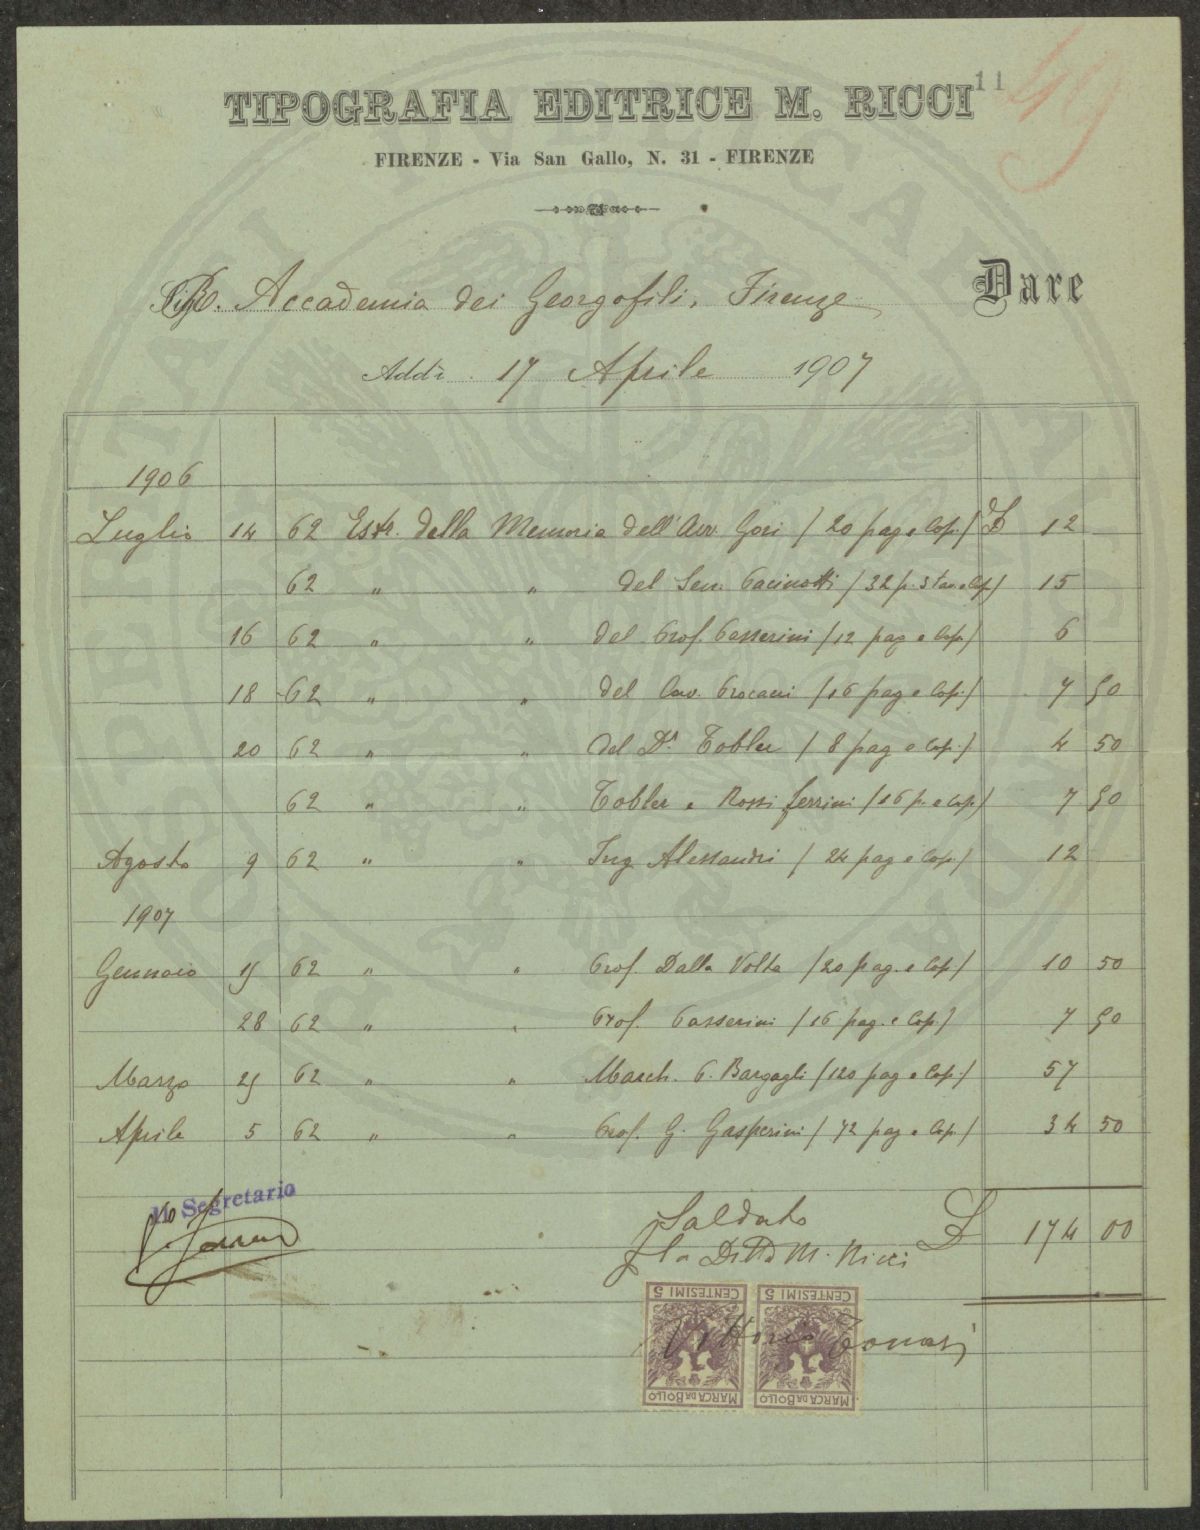 11
49
TIPOGRAFIA EDITRICE M. RICCI
FIRENZE - Via San Gallo, N. 31 - FIRENZE
R. Accademia dei Georgofili, Firenze Dare
Addì 17 Aprile 1907
1906
Luglio 14 62 Estr. della Memoria dell'Avv. Gori / 20 pag e Cop. / L 12
62 " " del Sen. Pacinotti / 32 p. 3 tav. e Cop / 15
16 62 " " del Prof. Passerini / 12 pag e Cop. / 6
18 62 " " del Cav. / 16 pag e Cop. / 7 50
20 62 " " del Dr. Tobler / 8 pag e Cop. / 4 50
62 " " Tobler e Rossi Ferrini / 16 p. e Cop. / 7 50
Agosto 9 62 " " Ing Alessandri / 24 pag e Cop. / 12
1907
Gennaio 15 62 " " Prof. Dalla Volta / 20 pag. e Cop. / 10 50
28 62 " " Prof. Passerini / 16 pag. e Cop. / 7 50
Marzo 25 62 " " March. P. Bargagli / 120 pag e Cop. / 57
Aprile 5 62 " " Prof. G. Gasperini / 72 pag e Cop. / 34 50
Il Segretario
Saldato L 174 00
p la Ditta M. Ricci
CENTESIMI 5 CENTESIMI 5
Vittorio
MARCA DA BOLLO MARCA DA BOLLO